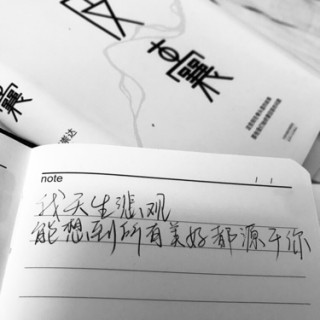 皮囊
囊
note
我天生悲观
能想到所有美好都源于你